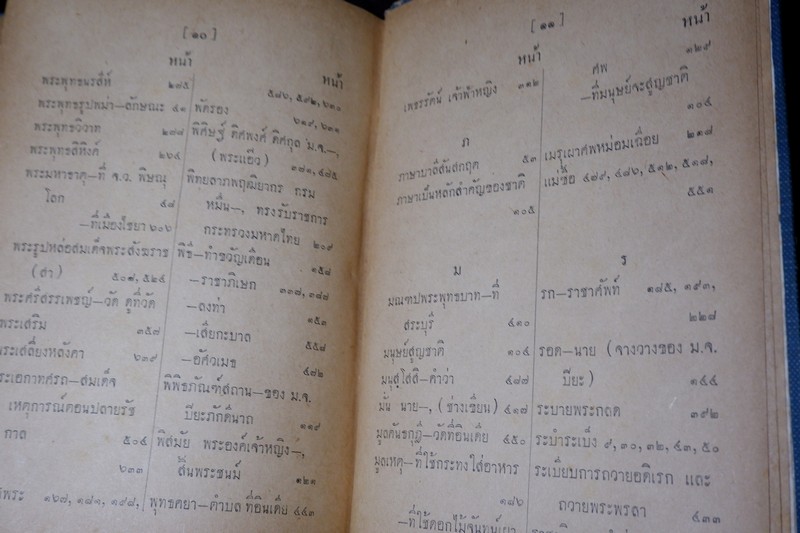 [ ๑๐ ]
หน้า
พระพุทธนรสีห์ ๒๙๕
พระพุทธรูปพม่า—ลักษณะ ๔๑
พระพุทธวิวาท ๒๗๘
พระพุทธสิหิงค์ ๒๖๔
พระมหาธาตุ—ที่ จ.ว. พิษณุ
โลก ๔๘
—ที่เมืองไชยา ๖๐๖
พระรูปหล่อสมเด็จพระสังฆราช
(สา) ๕๐๗, ๕๒๔
พระศรีสรรเพชญ์—วัด ดูที่วัด
พระเสริม ๓๕๗
พระเสลี่ยงหลังคา ๖๓๙
ระเอกาทศรถ—สมเด็จ
เหตุการณ์ตอนปลายรัช
กาล ๕๐๔
๖๓๓
๑๖๗, ๑๘๑, ๑๙๘,
หน้า
๕๘๖, ๕๙๒, ๖๓๐
พัดรอง ๖๑๙, ๖๓๑
พิศิษฐ์ ดิศพงศ์ ดิศกุล ม.จ.—,
(พระแอ๊ว) ๑๘๑, ๔๘๕
พิทยลาภพฤฒิยากร กรม
หมื่น—, ทรงรับราชการ
กระทรวงมหาดไทย ๒๐๙
พิธี—ทำขวัญเดือน ๑๕๘
—ราชาภิเษก ๓๓๗, ๓๘๘
—ลงท่า ๑๕๓
—เสี่ยกะบาล ๕๕๘
—อัศวเมธ ๔๗๒
พิพิธภัณฑ์สถาน—ของ ม.จ.
ปิยะภักดีนาถ ๑๑๙
พิสมัย พระองค์เจ้าหญิง—,
สิ้นพระชนม์ ๑๒๑
พุทธคยา—ตำบล ที่อินเดีย ๔๔๓
[ ๑๑ ]
หน้า
เพชรรัตน์ เจ้าฟ้าหญิง ๓๑๒
ภ
ภาษาบาลีสันสกฤต ๕๓
ภาษาเป็นหลักสำคัญของชาติ
๑๐๕
ม
มณฑปพระพุทธบาท—ที่
สระบุรี ๔๑๐
มนุษย์สูญชาติ ๑๐๔
มนุสฺโสสิ—คำว่า ๔๘๗
มั่น นาย—, (ช่างเขียน) ๔๑๗
มูลคันธกุฎี—วัดที่อินเดีย ๔๕๐
มูลเหตุ—ที่ใช้กระทงใส่อาหาร
๑๘๖
—ที่ใช้ดอกไม้จันทน์เผา
หน้า
ศพ ๑๒๙
—ที่มนุษย์จะสูญชาติ
๑๐๔
เมรุเผาศพหม่อมเฉื่อย ๒๑๗
แม่ซื้อ ๔๗๙, ๔๘๖, ๕๑๒, ๕๑๗,
๕๕๑
ร
รก—ราชาศัพท์ ๑๘๕, ๑๙๓,
๒๒๘
รอด—นาย (จางวางของ ม.จ.
ปิยะ) ๑๔๔
ระบายพระกลด ๓๙๒
ระบำระเบ็ง ๙, ๓๐, ๓๒, ๔๓, ๕๐
ระเบียบการถวายอดิเรก และ
ถวายพระพรลา ๔๓๓